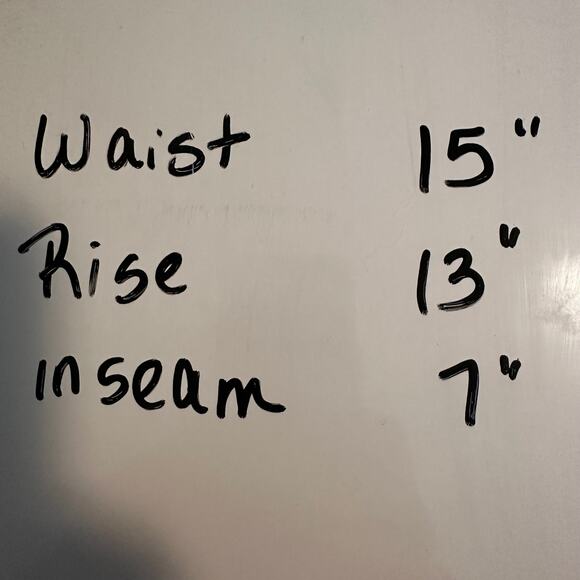 Waist 15"
Rise 13"
inseam 7"